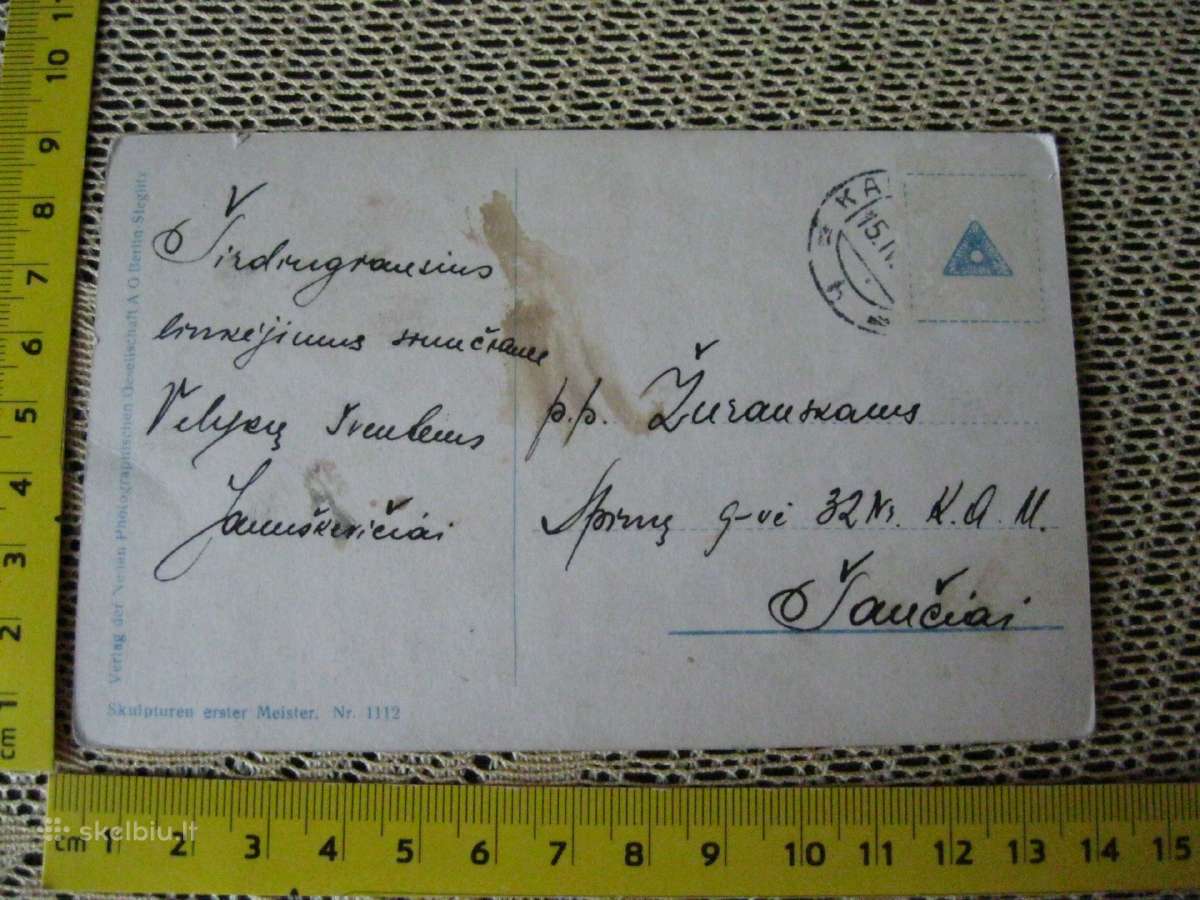 Širdingiausius
linkėjimus siunčiame
Velykų šventėms
Januškevičiai
p.p. Žurauskams
g-vė 32 Nr. K.A.M.
Šančiai
KA
15.IV.
Verlag der Neuen Photographischen Gesellschaft A G Berlin-Steglitz
Skulpturen erster Meister. Nr. 1112
11
10
9
8
7
6
5
4
3
2
1
cm
cm 1 2 3 4 5 6 7 8 9 10 11 12 13 14 15
skelbiu.lt